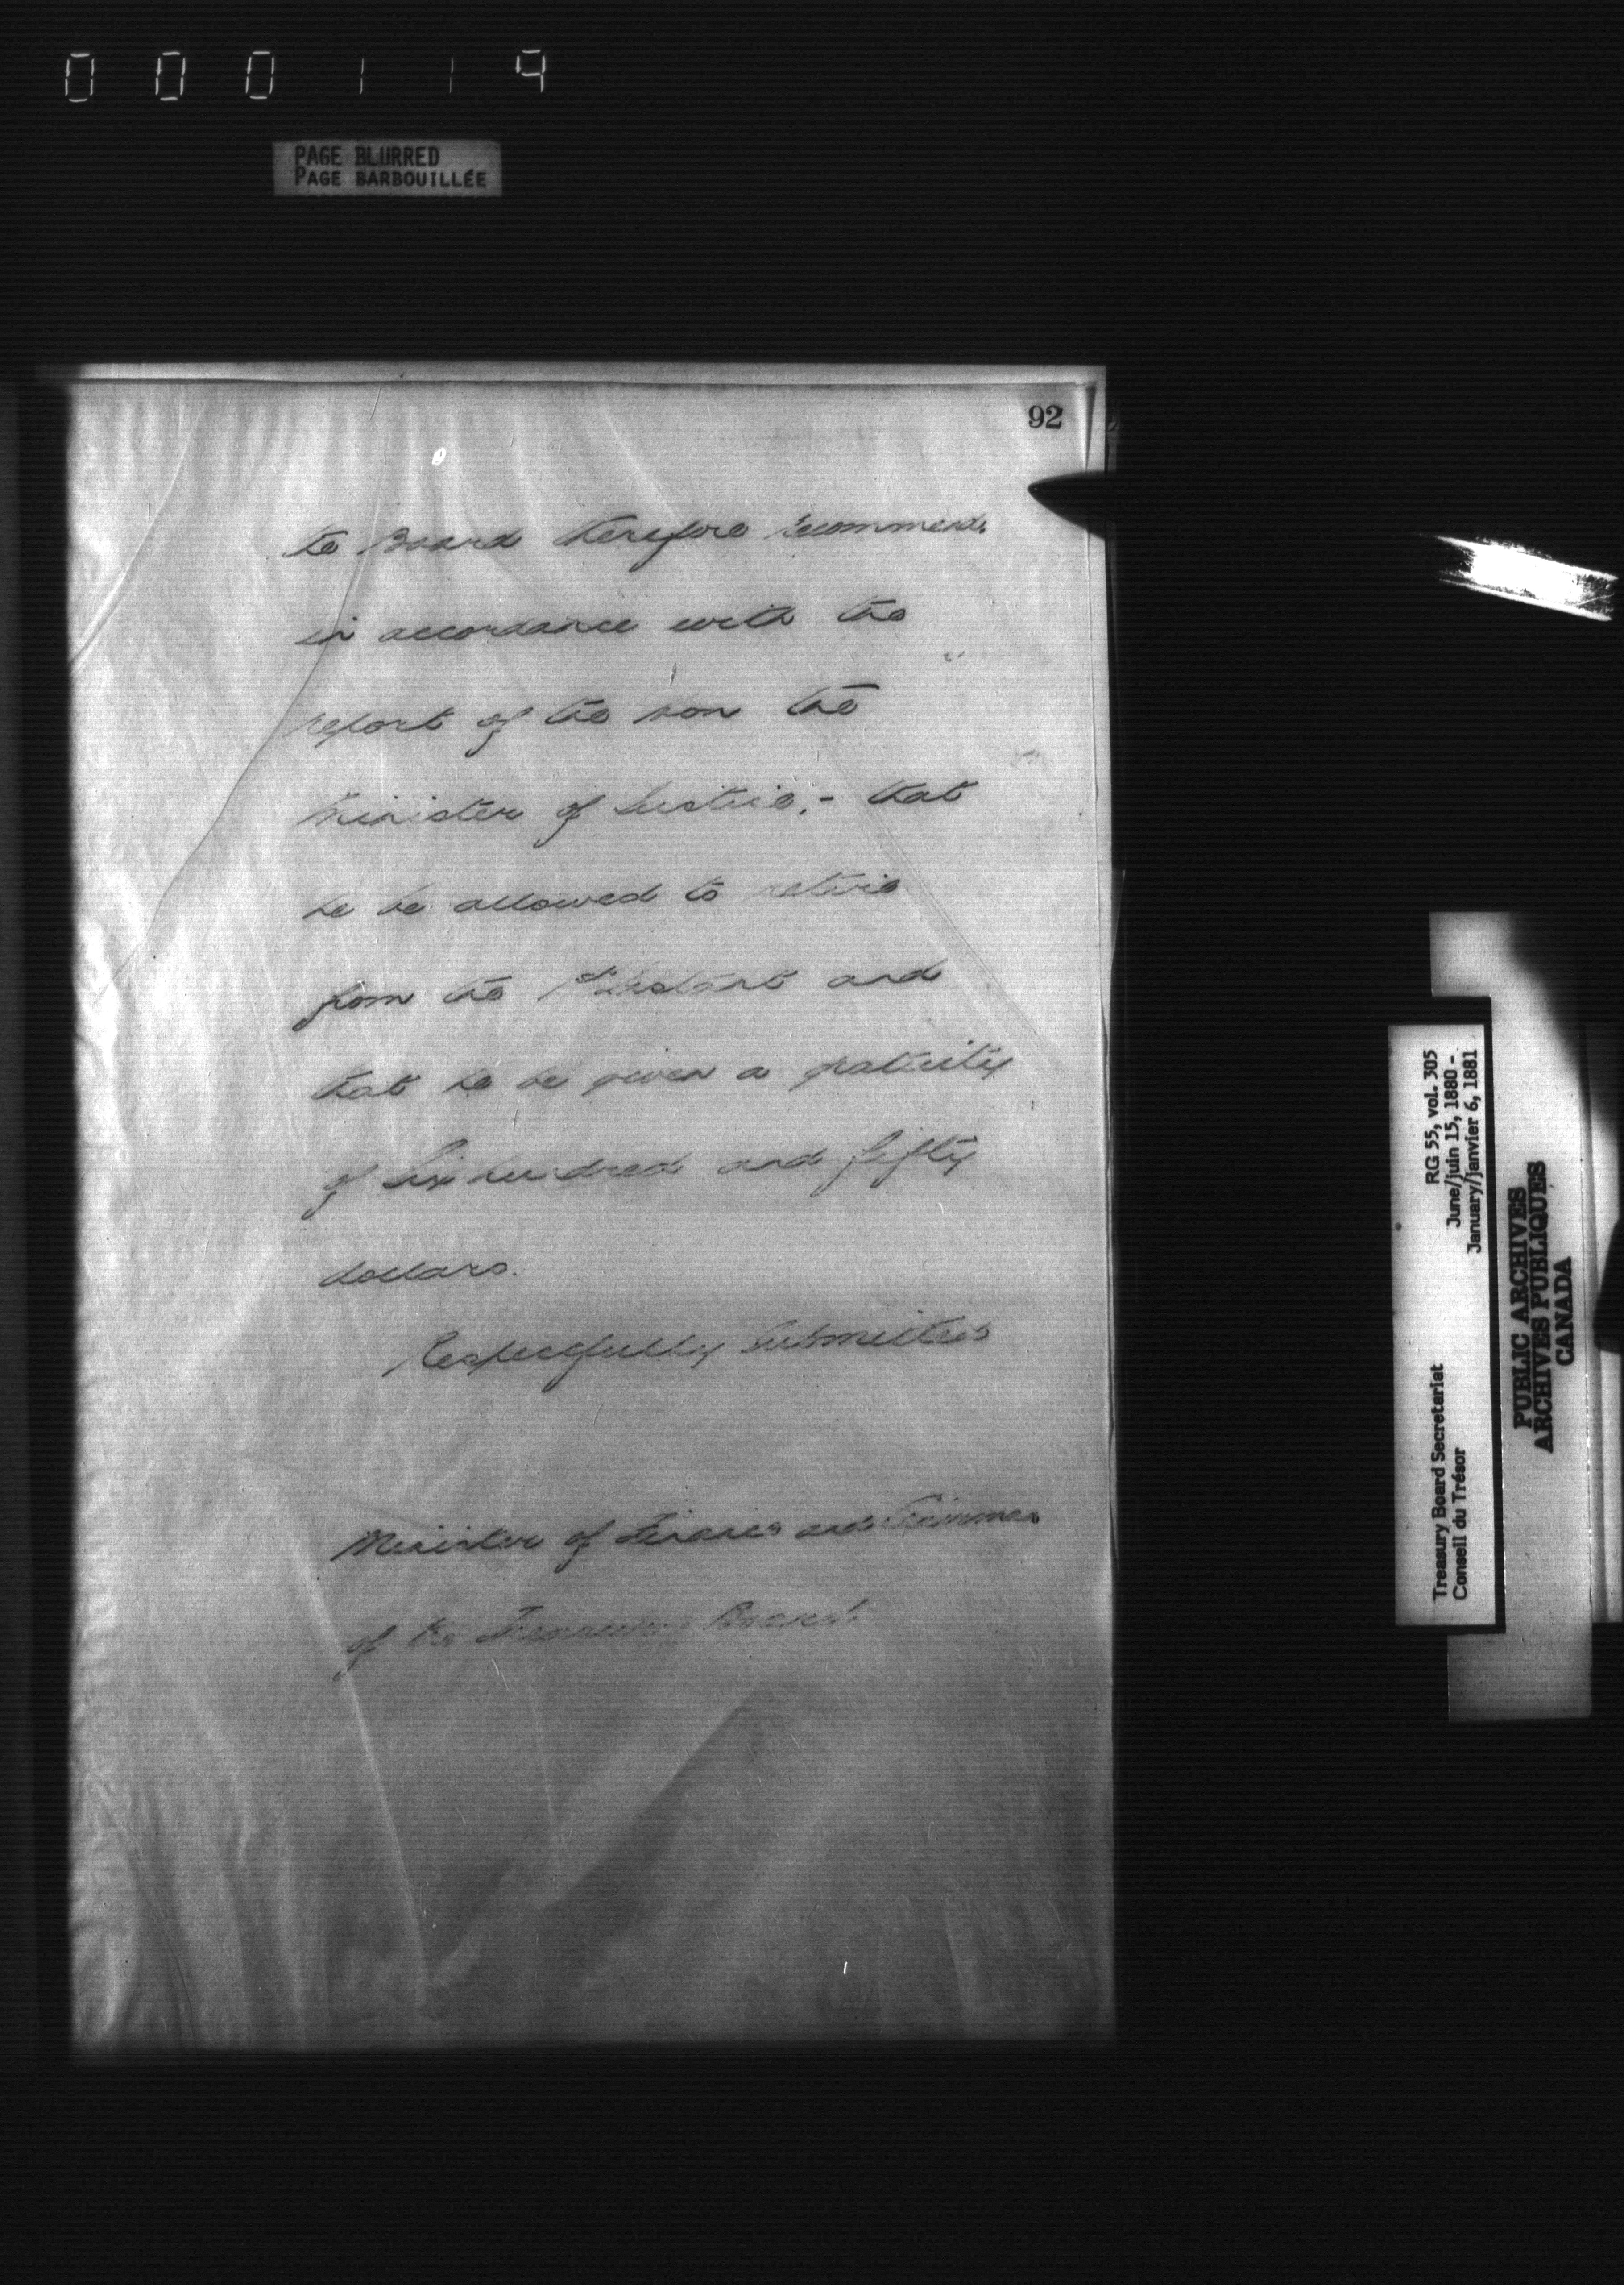 000119
PAGE BLURRED
PAGE BARBOUILLÉE
92
The Board therefore recommend
in accordance with the
report of the Hon the
Minister of Justice,- that
he be allowed to retire
from the 1st Instant and
that he be given a gratuity
of Six hundred and fifty
dollars.
Respectfully Submitted
Minister of Finance and Chairman
of the Treasury Board
Treasury Board Secretariat RG 55, vol. 305
Conseil du Trésor June/juin 15, 1880 -
January/janvier 6, 1881
PUBLIC ARCHIVES
ARCHIVES PUBLIQUES
CANADA